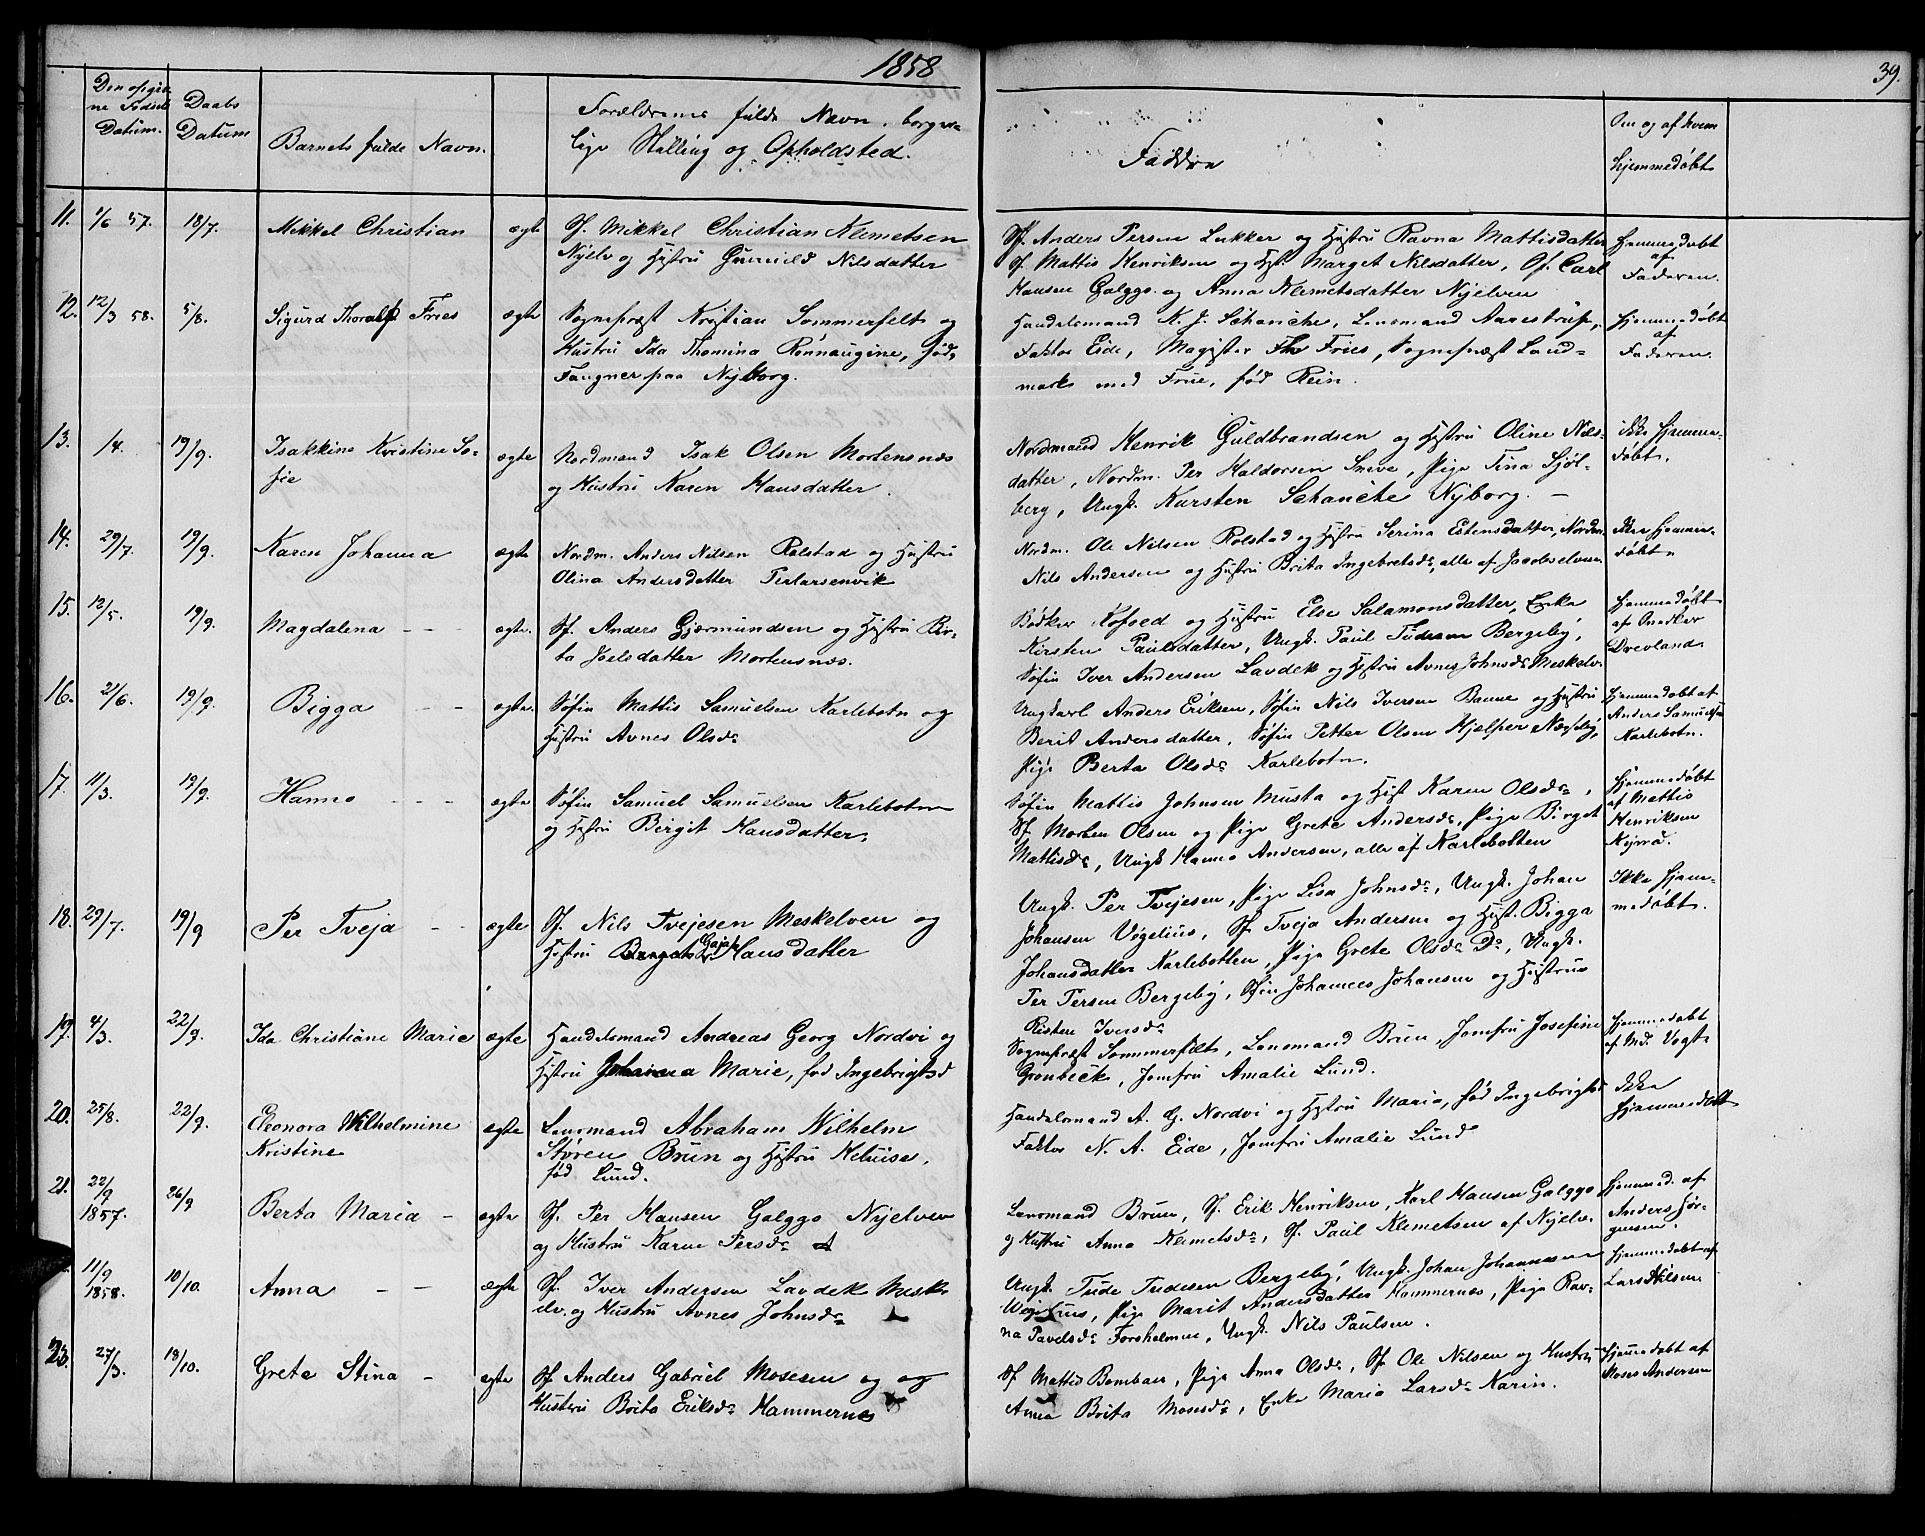 1858
39.
Den opgiv-
ne Fødsels
Datum.
Daabs
Datum
Barnets fulde Navn.
Forældrenes fulde Navn, borger-
lige Stilling og Opholdsted.
Faddre
Om og af hvem
hjemmedøbt
11. 1/6 57. 18/7. Mikkel Christian ægte Sf. Mikkel Christian Klemetsen
Nyelv og Hustru Gunnild Nilsdatter
Sf. Anders Persen Lukker og Hustru Ravna Mattisdatter
Sf. Mattis Henriksen og Hst. Marget Nilsdatter, Sf. Carl
Hansen Galggo og Anna Klemetsdatter Nyelven
Hjemmedøbt
af
Faderen.
12. 12/3 58. 5/8. Sigurd Thoralf Fries ægte Sognepræst Kristian Sommerfelt og
Hustru Ida Thomina Rønnaugine, fød
Faugner paa Nyborg.
Handelsmand K. J. Schanche, Lensmand Aarestrup,
Faktor Eide, Magister Th Fries, Sognepræst Land-
mark med Frue, fød Rein.
Hjemmedøbt
af
Faderen.
13. 1/4. 19/9. Isakkine Kristine So-
fie
ægte Nordmand Isak Olsen Mortensnæs
og Hustru Karen Hansdatter.
Nordmand Henrik Guldbrandsen og Hustru Oline Niels-
datter, Nordm. Per Haldorsen Sneve, Pige Tina Sjøl-
berg, Ungk. Karsten Schanche Nyborg. —
ikke hjemme-
døbt.
14. 29/7. 19/9. Karen Johanna ægte Nordm. Anders Nilsen Rolstad og Hustru
Olina Andersdatter Perlarsenvik
Nordm. Ole Nilsen Rolstad og Hustru Serina Estensdatter, Nordm.
Nils Andersen og Hustru Brita Ingebretsdr, alle af Jacobselven
Ikke hjemme-
døbt
15. 12/5. 19/9. Magdalena — — ægte. Sf. Anders Gjermundsen og Hustru Ber-
ta Joelsdatter Mortensnæs.
Bødker Kofoed og Hustru Else Salamonsdatter, Enke
Kirsten Paulsdatter, Ungk. Paul Tudesen Bergeby,
Søfin Iver Andersen Lavdek og Hustru Avnes Johnsdr Meskelv.
Hjemmedøbt
af Snedker
Drevland
16. 21/6. 19/9. Bigga — — ægte. Søfin Mattis Samuelsen Karlebotn og
Hustru Avnes Olsdr
Ungkarl Anders Eriksen, Søfin Nils Iversen Banne og Hustru
Berit Andersdatter, Søfin Petter Olsen Hjelper Næsseby,
Pige Berta Olsdr Karlebotn.
Hjemmedøbt af
Anders Samuelsen
Karlebotn.
17. 11/3. 19/9. Hanno — — — ægte Søfin Samuel Samuelsen Karlebotn
og Hustru Birgit Hansdatter,
Søfin Mattis Johnsen Musta og Hust Karen Olsdr,
Sf. Morten Olsen og Pige Grete Andersdr, Pige Birget
Mattisdr, Ungk Hanno Andersen, alle af Karlebotten
Hjemmedøbt
af Mattis
Henriksen
18. 29/7. 19/9 Per Tveja — — ægte Sf. Nils Tvejesen Meskelven og
Hustru Hansdatter
Ungk. Per Tvejesen, Pige Lisa Johnsdr, Ungk. Johan
Johansen Vogelius, Sf Tveja Andersen og Hust. Bigga
Johansdatter Karlebotten, Pige Grete Olsdr Do, Ungk.
Per Persen Bergeby, Sfin Johannes Johansen og Hustrue
Risten Iversdr
Ikke hjem-
medøbt.
19. 4/3. 22/9. Ida Christiane Marie ægte Handelsmand Andreas Georg Nordvi og
Hustru Johanna Marie, fød Ingebrigtsd
Sognepræst Sommerfelt, Lensmand Brun, Jomfru Josefine
Grønbeck, Jomfru Amalie Lund.
Hjemmedøbt
af Md. Vogt
20. 25/8. 22/9. Eleonora Wilhelmine
Kristine
ægte Lensmand Abraham Wilhelm
Støren Brun og Hustru Heluise,
fød Lund.
Handelsmand A. G. Nordvi og Hustru Maria, fød Ingebrigtsd
Faktor N. A. Eide, Jomfru Amalie Lund
Ikke
hjemmedøbt
21. 22/9
1857. 26/9 Berta Maria — ægte Sf. Per Hansen Galggo Nyelven
og Hustru Karen Persdr
Lensmand Brun, Sf. Erik Henriksen, Karl Hansen Galggo
og Hustru Anna Klemetsdr, Sf. Paul Klemetsen af Nyelv.
Hjemmed. af
Anders Jør-
gensen.
11/9
1858. 10/10. Anna — — ægte Sf. Iver Andersen Lavdek Mesk-
elv. og Hustru Avnes Johnsdr
Ungk. Tude Tudesen Bergeby, Ungk. Johan Johannesen
Pige Marit Andersdatter Hammernes, Pige Rav-
na Pavelsdr Forsholmen, Ungk. Nils Paulsen.
Hjemmedøbt af
Lars Nilsen
23. 27/3. 18/10. Greta Stina — ægte Sf. Anders Gabriel Mosesen og og
Hustru Brita Eriksdr Hammernes
Sf Mattis Bomban, Pige Anna Olsdr, Sf Ole Nilsen og Hustru
Anna Brita Mosesdr, Enke Maria Larsdr Karin.
Hjemmedøbt af
Moses Andersen